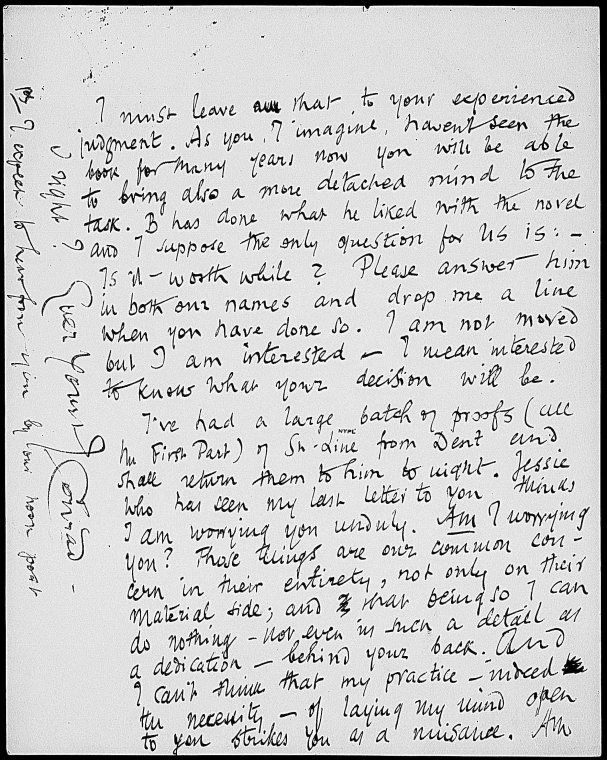 I must leave that to your experienced
judgment. As you, I imagine, haven't seen the
book for many years now you will be able
to bring also a more detached mind to the
task. B has done what he liked with the novel
and I suppose the only question for us is: –
Is it – worth while? Please answer him
in both our names and drop me a line
when you have done so. I am not moved
but I am interested – I mean interested
to know what your decision will be.
I've had a large batch of proofs (all
the First Part) of Sh-Line from Dent and
NYPL
shall return them to him to night. Jessie
who has seen my last letter to you thinks
I am worrying you unduly. Am I worrying
you? Those things are our common con-
cern in their entirety, not only on their
material side; and that being so I can
do nothing – not even in such a detail as
a dedication – behind your back. And
I can't think that my practice – indeed
the necessity – of laying my mind open
to you strikes you as a nuisance. Am
I right?
Ever Yours
J Conrad –
PS I expect to hear from you by noon post